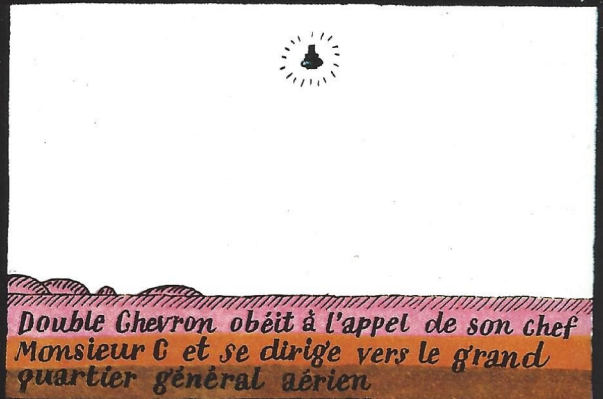 Double Chevron obéit à l'appel de son chef
Monsieur C et se dirige vers le grand
quartier général aérien